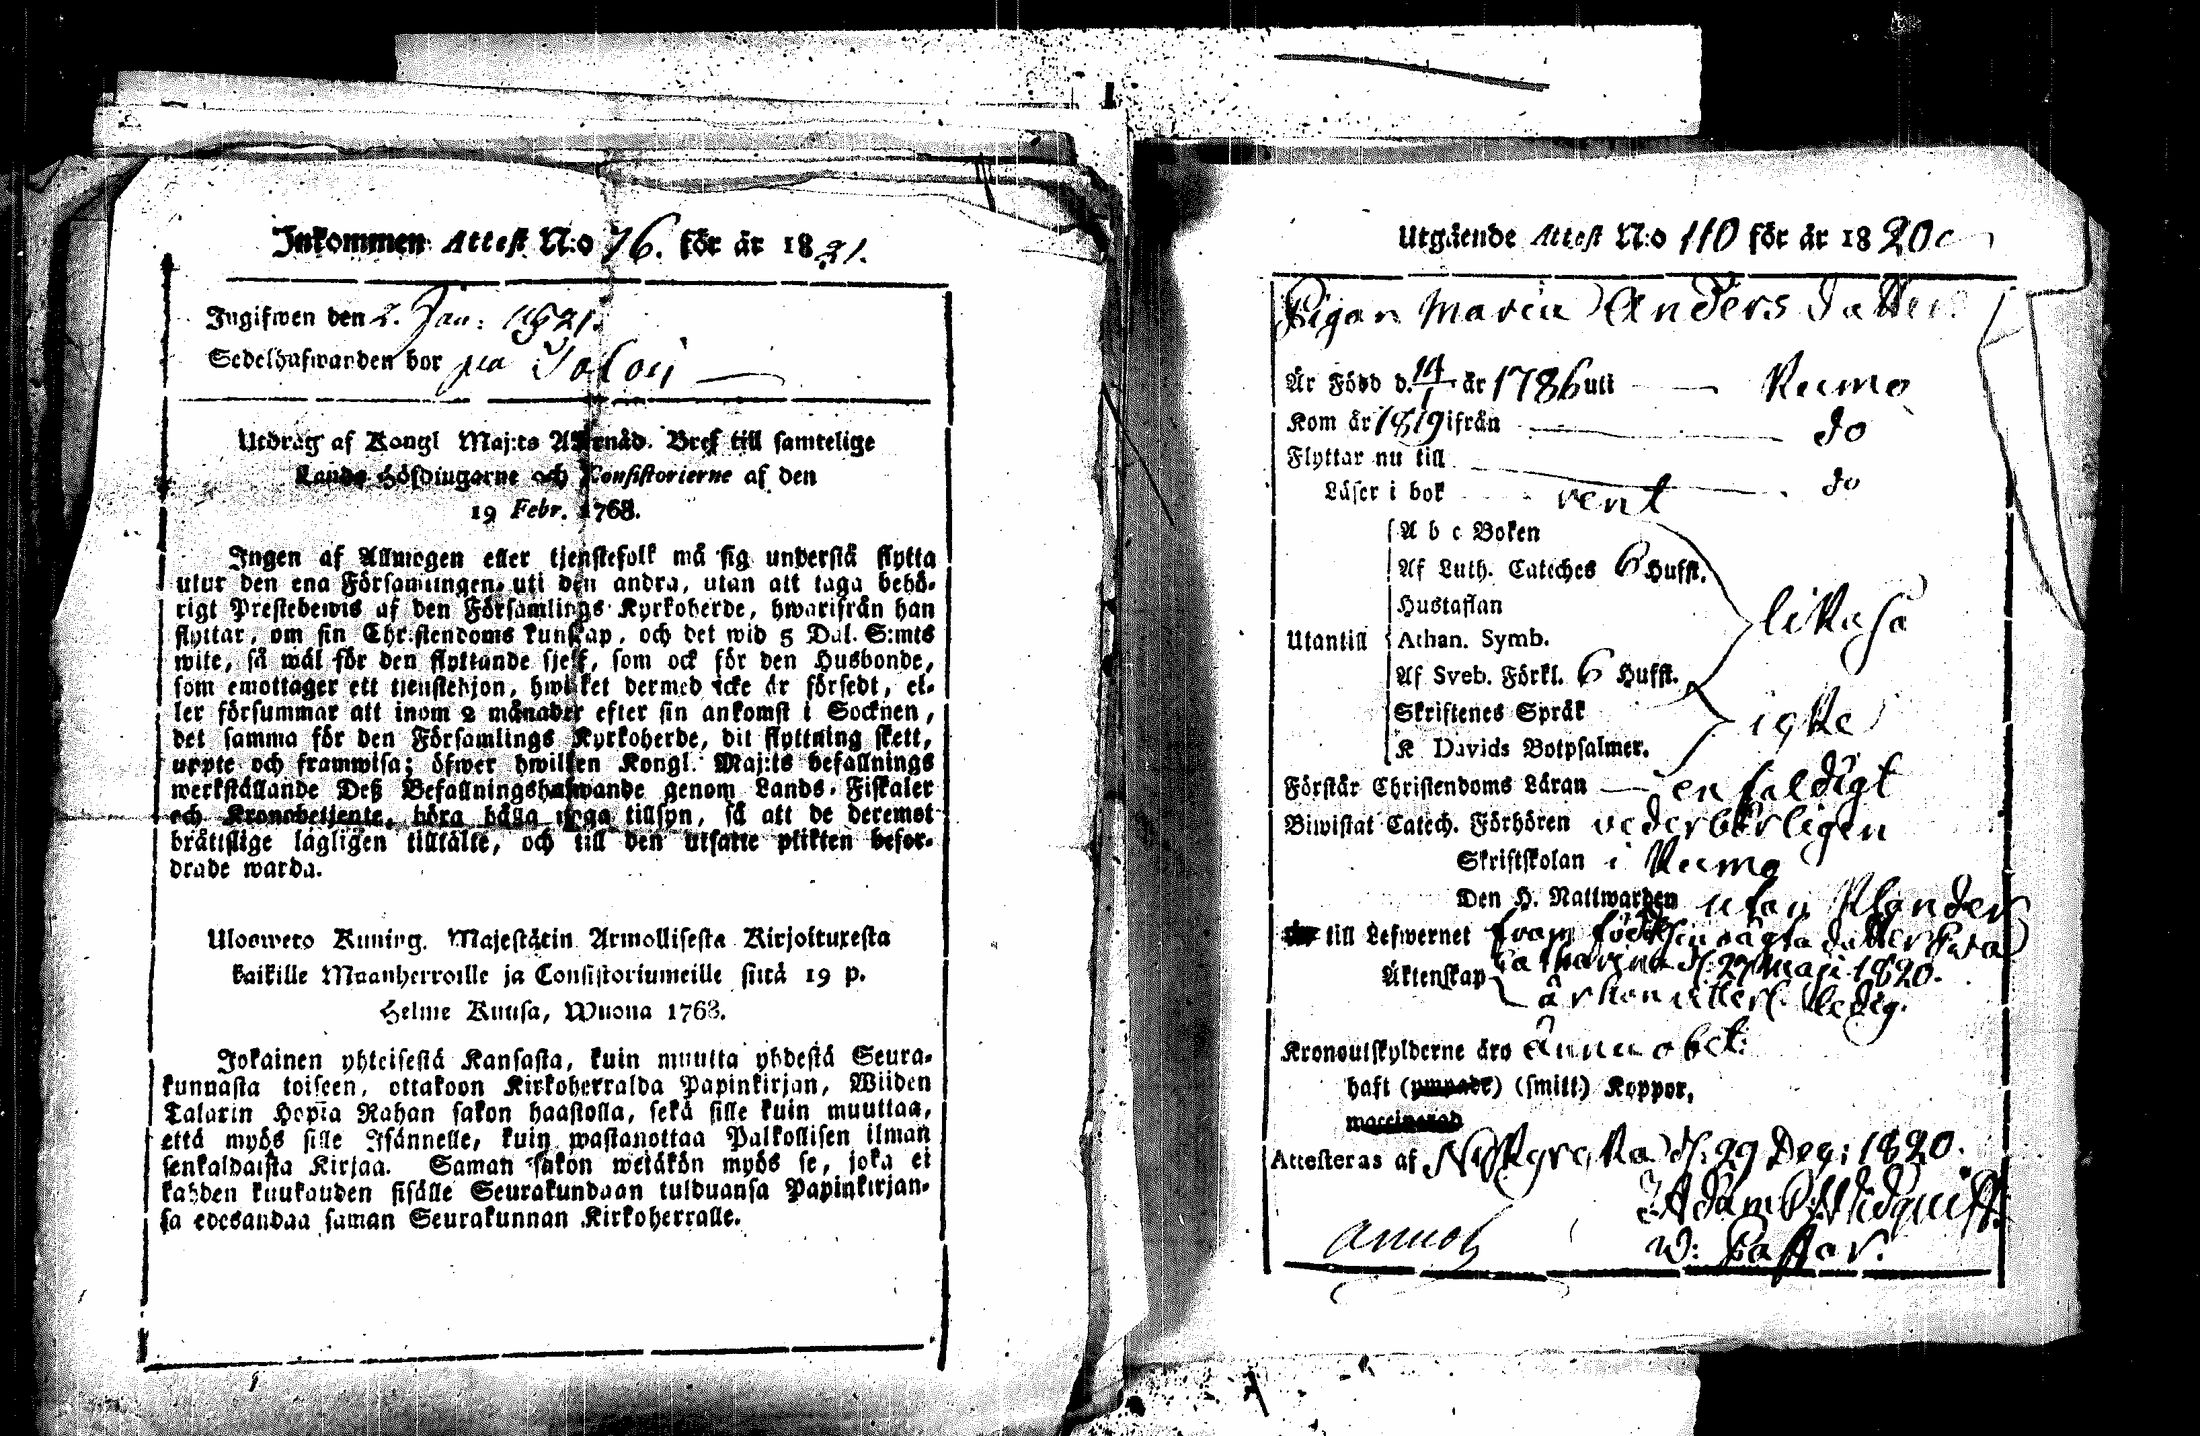 Inkommen Attest N:o 76. för år 1821.
Ingifwen den 2. Jan: 1821.
Sedelhafwanden bor på
Utdrag af Kongl Maj:ts Allernåd. Bref till samtelige
Lands Höfdingarne och Consistorierne af den
19 Febr. 1768.
Ingen af Allmogen eller tjenstefolk må sig understå flytta
utur den ena Församlingen uti den andra, utan att taga behö-
rigt Prestebewis af den Församlings Kyrkoherde, hwarifrån han
flyttar, om sin Christendoms kunskap, och det wid 5 Dal. S:mts
wite, så wäl för den flyttande sjelf, som ock för den Husbonde,
som emottager ett tjenstehjon, hwilket dermed icke är försedt, el-
ler försummar att inom 2 månader efter sin ankomst i Socknen,
det samma för den Församlings Kyrkoherde, dit flyttning skett,
uppte och framwisa; öfwer hwilken Kongl. Maj:ts befallnings
werkställande Deß Befallningshafwande genom Lands-Fiskaler
och Kronobetjente, böra hålla noga tillsyn, så att de deremot
bråttslige lagligen tilltalte, och till den utsatte plikten befor-
drade warda.
Uloswero Kuning. Majestätin Armollisesta Kirjoituxesta
kaikille Maanherroille ja Consistoriumeille siitä 19 p.
Helme Kuusa, Wuona 1768.
Jokainen yhteisestä Kansasta, kuin muutta yhdestä Seura-
kunnasta toiseen, ottakoon Kirkoherralda Papinkirjan, Wiiden
Talarin Hopia Rahan sakon haastolla, sekä sille kuin muuttaa,
että myös sille Isännelle, kuin wastanottaa Palkollisen ilman
senkaldaista Kirjaa. Saman sakon wetäkön myös se, joka ei
kahden kuukauden sisälle Seurakundaan tulduansa Papinkirjan-
sa edesandaa saman Seurakunnan Kirkoherralle.
Utgående Attest N:o 110 för år 1820
Pigan Maria Anders dotter
Är Född d. 14/1 år 1786 uti Kumo
Kom år 1819 ifrån do
Flyttar nu till do
Läser i bok rent
A b c Boken
Af Luth. Cateches 6 Hufst.
Hustaflan
likaså
Utantill Athan. Symb.
Af Sveb. Förkl. 6 Hufst.
Skriftenes Språk
icke
K Davids Botpsalmer.
Förstår Christendoms Läran enfaldigt
Biwistat Catech. Förhören vederbörligen
Skriftskolan i Kumo
Den H. Nattwarden utan klander
till Lefwernet from födt sin oägta dotter
Catharina d. 27 Maji 1820.
Äktenskap är hon ledig.
Kronoutskylderne äro ännu obet:
haft (ympade) (smitt.) Koppor,
waccinerad
Attesteras af Nykyrcka d. 29 Dec: 1820.
Adam Widquist
v: Pastor.